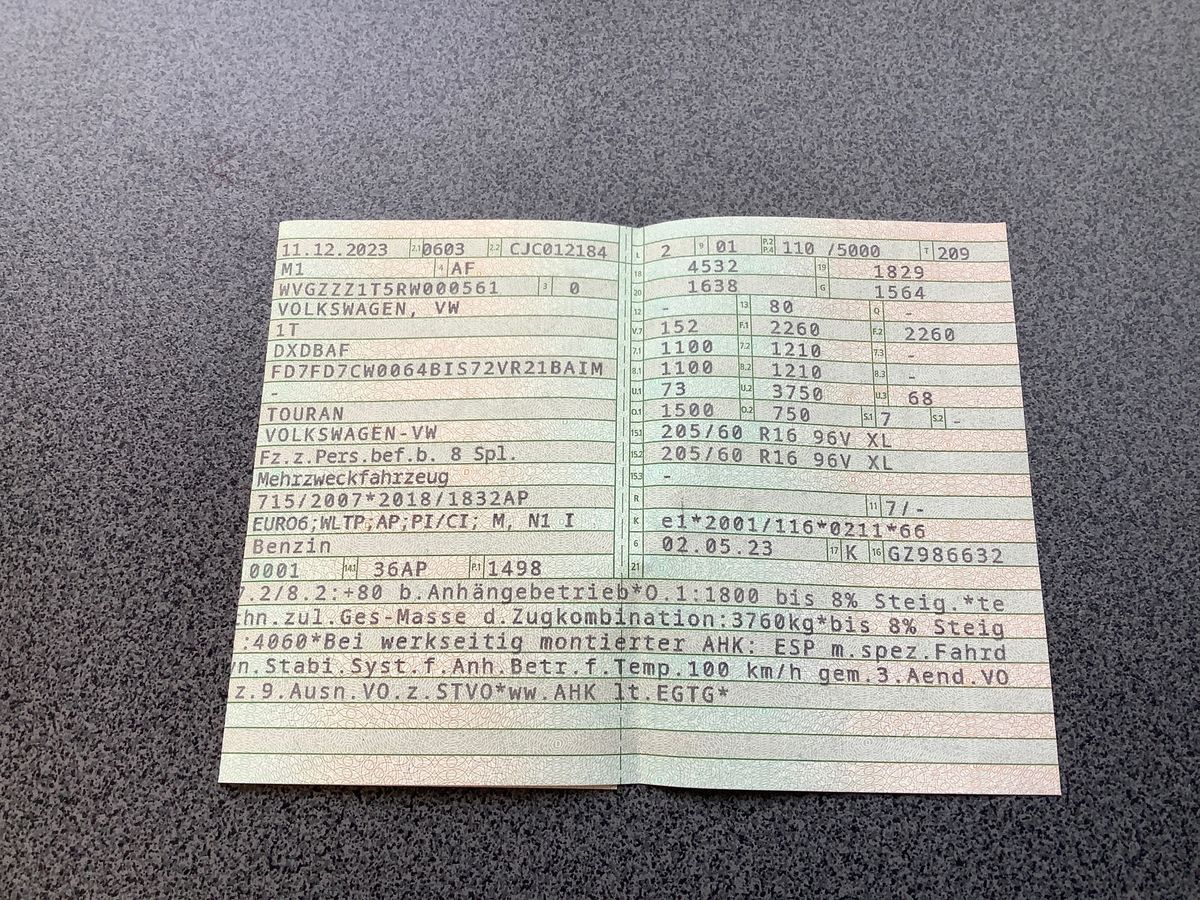 11.12.2023 2.1 0603 2.2 CJC012184
M1 4 AF
WVGZZZ1T5RW000561 3 0
VOLKSWAGEN, VW
1T
DXDBAF
FD7FD7CW0064BIS72VR21BAIM
-
TOURAN
VOLKSWAGEN-VW
Fz.z.Pers.bef.b. 8 Spl.
Mehrzweckfahrzeug
715/2007*2018/1832AP
EURO6;WLTP;AP;PI/CI; M, N1 I
Benzin
0001 14.1 36AP P.1 1498
L 2 9 01 P.2 P.4 110 /5000 T 209
18 4532 19 1829
20 1638 G 1564
12 - 13 80 Q -
V.7 152 F.1 2260 F.2 2260
7.1 1100 7.2 1210 7.3 -
8.1 1100 8.2 1210 8.3 -
U.1 73 U.2 3750 U.3 68
O.1 1500 O.2 750 S.1 7 S.2 -
15.1 205/60 R16 96V XL
15.2 205/60 R16 96V XL
15.3 -
R 11 7/-
K e1*2001/116*0211*66
6 02.05.23 17 K 16 GZ986632
21
7.2/8.2:+80 b.Anhängebetrieb*O.1:1800 bis 8% Steig.*te
chn.zul.Ges-Masse d.Zugkombination:3760kg*bis 8% Steig
.:4060*Bei werkseitig montierter AHK: ESP m.spez.Fahrd
yn.Stabi.Syst.f.Anh.Betr.f.Temp.100 km/h gem.3.Aend.VO
z.9.Ausn.VO.z.STVO*ww.AHK lt.EGTG*